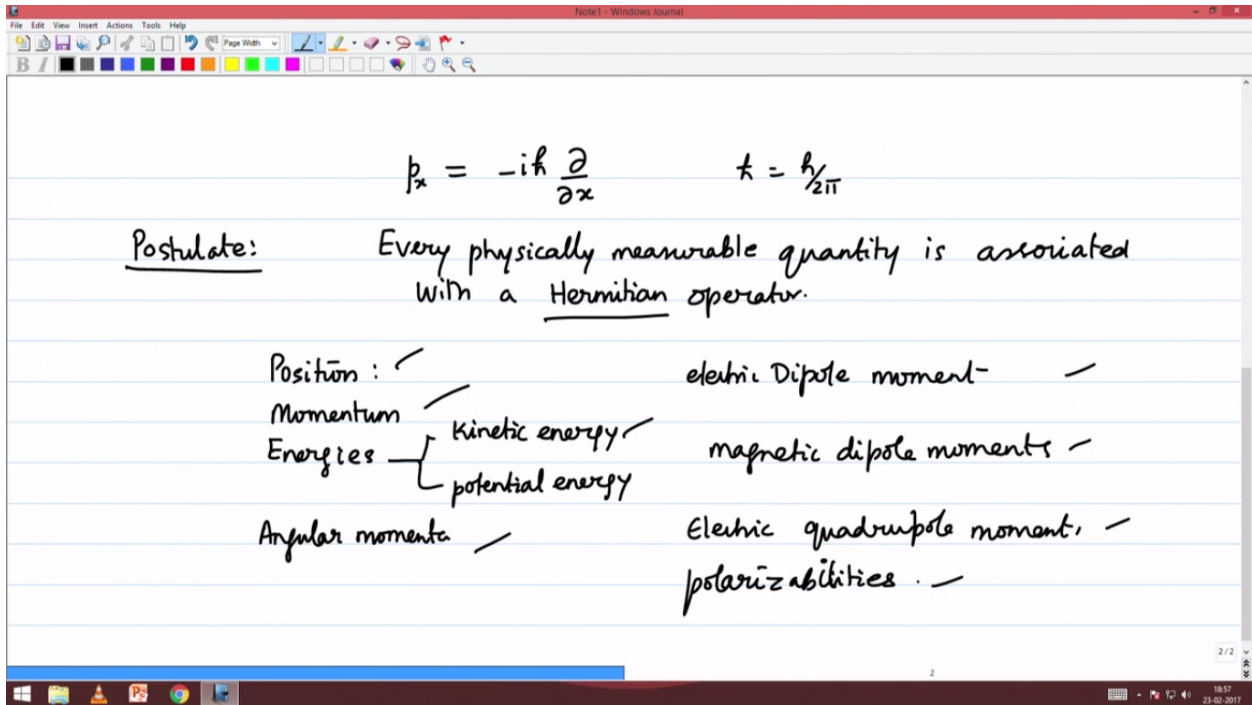 Note1 - Windows Journal
File Edit View Insert Actions Tools Help
Page Width
B I
pₓ = -iħ ∂/∂x ħ = h/2π
Postulate: Every physically measurable quantity is associated
with a Hermitian operator.
Position :
Momentum
Energies
Kinetic energy
potential energy
Angular momenta
electric Dipole moment
magnetic dipole moments
Electric quadrupole moment,
polarizabilities .
2/2
2
18:57
23-02-2017